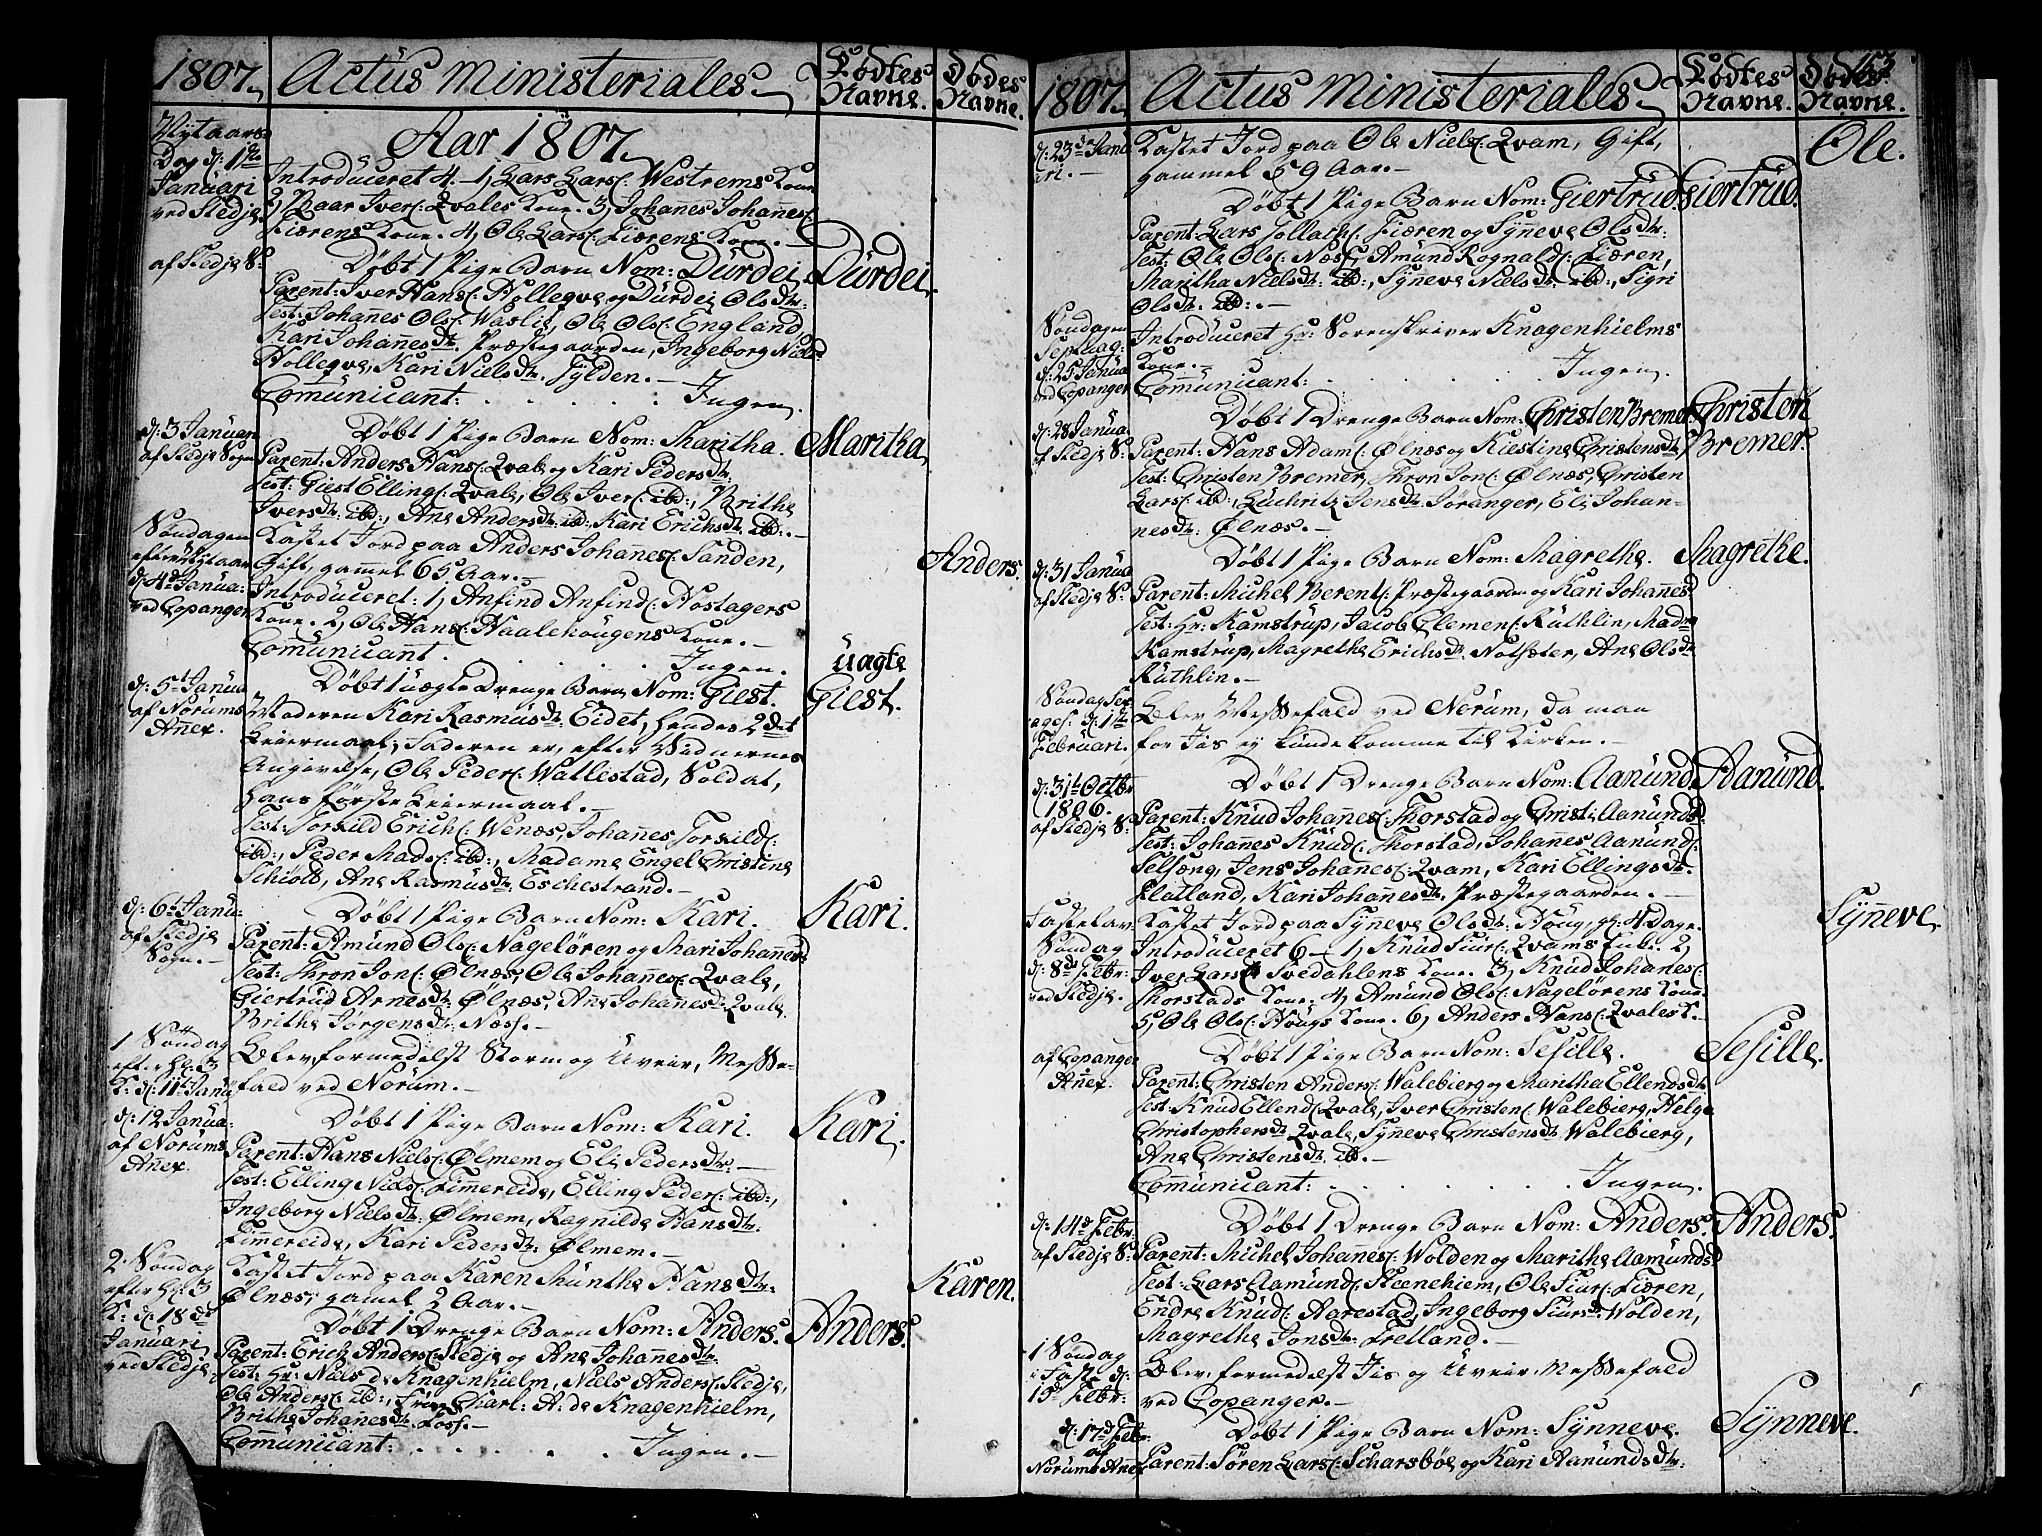 1807. Actus Ministeriales. Fødtes Navne. Dødes Navne.
Nytaars
Dag d: 1ste
Januari
ved Stedje
Aar 1807.
Introduceret 4. 1, Lars Lars: Westrems Kone
2, Iver: Qvales Kone. 3, Johannes Johannes:
Fiærens Kone. 4, Ole Lars: Fiærens Kone.
af Stedje S:
Døbt 1 Pige Barn Nom: Dürdei. Dürdei.
Parent: Iver Hans: Holleqve og Dürdei Olsdtr:
Test: Johanes Ols: Waslie, Ole Ols: England
Kari Johanesdtr. Præstegaarden, Ingeborg Niels
Hollegve, Kari Nielsdtr. Fylden.
Communicant: . . . . . Ingen.
d: 3 Januari
af Stedje Sogn
Døbt 1 Pige Barn Nom: Maritha. Maritha.
Parent: Anders Hans: Qvale og Kari Pedersdtr:
Test: Giest Elling: Qvale, Ole Iver: ibd:, Brithe
Iversdtr: ibd:, Ane Andersdtr: ibd: Kari Erichsdtr: ibd:.
Søndagen
efter Nytaar
d: 4de Janua:
ved Copanger
Kastet Jord paa Anders Johannes: Sanden, Anders.
Gift, gammel 65 Aar.
Introduceret: 1, Anfind Anfind: Nostagers
Kone. 2, Ole Hans: Haalehougens Kone.
Communicant. . . . . . Ingen.
d: 5t Janua
af Norums
Añex.
Døbt 1 uægte Drenge Barn Nom: Giest. üagte Giest.
Moderen Kari Rasmüsdtr: Eidet, hendes 2det
Leiermaal; Faderen er, efter Moderens
Angivelse, Ole Peder: Wallestad, Soldat,
hans første Leiermaal.
Test: Torkild Erich: Wenæs, Johannes Torkild:
ibd:, Peder Mads: ibd:, Madame Engel Christine
Schiold, Ane Rasmusdtr: Eschestrand.
d: 6t Janu:
af Stedje
Sogn.
Døbt 1 Pige Barn Nom: Kari. Kari.
Parent: Amünd Ols: Nageløren og Mari Johannesd:
Test: Thron Jon: Ølnæs, Ole Johannes: Qvale,
Giertrüd Arnesdtr: Ølnæs, Ane Johanesdtr: Qvale
Brithe Jørgensdtr: Næss.
1 Søndag
efter H: 3
K: d: 11t Janu
Blev, formedelst Storm og Uveir, Messe-
fald ved Norum.
d: 12 Janua:
af Norums
Añex.
Døbt 1 Pige Barn Nom: Kari. Kari.
Parent: Hans Niels: Ølmem og Eli Pedersdtr:
Test: Elling Niels: Fimmereide, Elling Peder: ibd:,
Ingeborg Nielsdtr: Ølmem, Ragnilde Hansdtr:
Fimmereide, Kari Pedersdtr: Ølmem.
2 Søndag
efter H: 3
K: d: 18de
Januari
ved Stedje
Kastet Jord paa Karen Münthe Hansdtr: Karen.
Ølnæs, gamel 2 Aar.
Døbt 1 Drenge Barn Nom: Anders. Anders.
Parent: Erich Anders: Stedje og Ane Johannesdtr.
Test: Hr: Niels de Knagenhielm, Niels Anders: Stedje,
Ole Anders: ibd:, Frue Charl: A: de Knagenhielm,
Brithe Johannesdtr: Loss.
Communicant: . . . . . Ingen.
153
1807. Actus Ministeriales. Fødtes Navne. Dødes Navne.
d: 23de Janu
ari.
Kastet Jord paa Ole Niels: Qvam, Gift, Ole.
gammel 59 Aar.
Døbt 1 Pige Barn Nom: Giertrud. Giertrud.
Parent: Lars Tollach: Fiæren og Synneve Olsdtr:
Test: Ole Ols: Næs, Amund Rognald: Fiæren,
Maritha Nielsdtr: ibd:, Synneve Nielsdtr: ibd:, Sigri
Olsdtr: ibd:.
Søndagen
Septuag:
d: 25 Janua
ved Copanger
Introduceret Hr: Sorenskriver Knagenhielms
Kone.
Communicant: . . . . . Ingen.
d: 28 Janua
af Stedje S:
Døbt 1 Drenge Barn Nom: Christen Bremer. Christen Bremer.
Parent: Hans Adam: Ølnæs og Kiestine Christensdtr
Test: Christen Bremer, Thron Jon: Ølnæs, Christen
Lars: ibd:, Lüchritz Jensdtr: Søranger, Eli Johan-
nesdtr: Ølnæs.
d: 31 Janua
af Stedje S:
Døbt 1 Pige Barn Nom: Magrethe. Magrethe.
Parent: Michel Berent: Præstegaarden og Kari Johannes
Test: Hr: Kamstrup, Jacob Clemen: Rüthlin, Madme
Kamstrup, Magrethe Erichsdtr: Notsæter, Ane Olsdtr
Rüthlin.
Søndag Sex
ages: d: 1te
Februari.
Blev Messefald ved Norüm, da man
for Iis ej kunde komme til Kirken.
d: 31t Octbr
1806.
af Stedje S:
Døbt 1 Drenge Barn Nom: Aamünd. Aamünd.
Parent: Knüd Johañes: Thorstad og Christi Aamündsd:
Test: Johannes Knüd: Thorstad, Johannes Aamund:
Selseng, Jens Johanes: Qvam, Kari Ellingsdtr.
Flatland, Kari Johannesdtr: Præstegaarden.
Fastelav:
Søndag
d: 8de Febr:
ved Stedje.
Kastet Jord paa Synneve Olsdtr: Houg, gl: 4 Dage. Synneve.
Introduceret 6. 1, Knüd Siur: Qvams Enke. 2,
Iver Lars: Svedahlens Kone. 3, Knüd Johanes:
Thorstads Kone. 4, Amünd Ols: Nagelørens Kone
5, Ole Ols: Hougs Kone. 6, Anders Hans: Qvales K.
af Copanger
Añex.
Døbt 1 Pige Barn Nom: Sesille. Sesille.
Parent: Christen Anders: Walebierg og Maritha Ellendsdtr
Test: Knüd Ellend: Qvale, Iver Christen: Walebierg, Helge
Christophersdtr: Qvale, Synneve Christensdtr: Walebierg,
Ane Christensdtr: ibd:.
Communicant: . . . . . . Ingen.
d: 14de Febr:
af Stedje S:
Døbt 1 Drenge Barn Nom: Anders. Anders.
Parent: Michel Johannes: Wolden og Marithe Aamundsd:
Test: Lars Aamund: Steenehiem, Ole Siur: Fiæren,
Endre Knüd: Aarestad, Ingeborg Siursdtr: Wolden,
Magrethe Jonsdtr: Fretland.
1 Søndag
i Faste d:
15de Febr:
Blev, formedelst Iis og Uveir, Messefald
ved Copanger.
d: 17de Febr:
af
Norums Añex
Døbt 1 Pige Barn Nom: Synneve. Synneve.
Parent: Søren Lars: Scharsbøe og Kari Aamündsdtr: